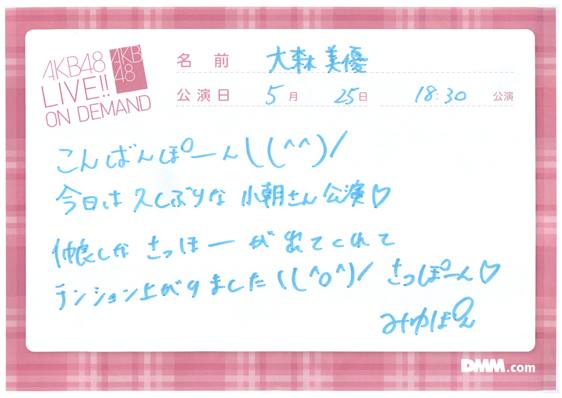 AKB48
LIVE!!
ON DEMAND
AKB
48
名前 大森美優
公演日 5月 25日 18:30 公演
こんばんぽーん\(^^)/
今日は久しぶりな 小朝さん公演♡
仲良しな さっほーが出てくれて
テンション上がりました\(^o^)/ さっぽーん♡
みゆぽん
DMM.com